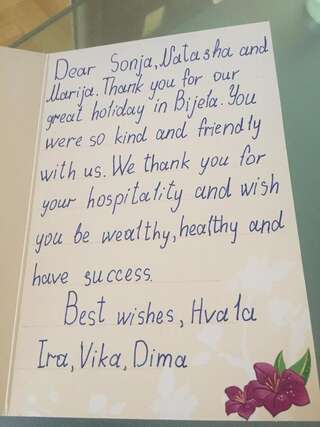 Dear Sonja, Natasha and
Marija. Thank you for our
great holiday in Bijela. You
were so kind and friendly
with us. We thank you for
your hospitality and wish
you be wealthy, healthy and
have success.
Best wishes, Hvala
Ira, Vika, Dima